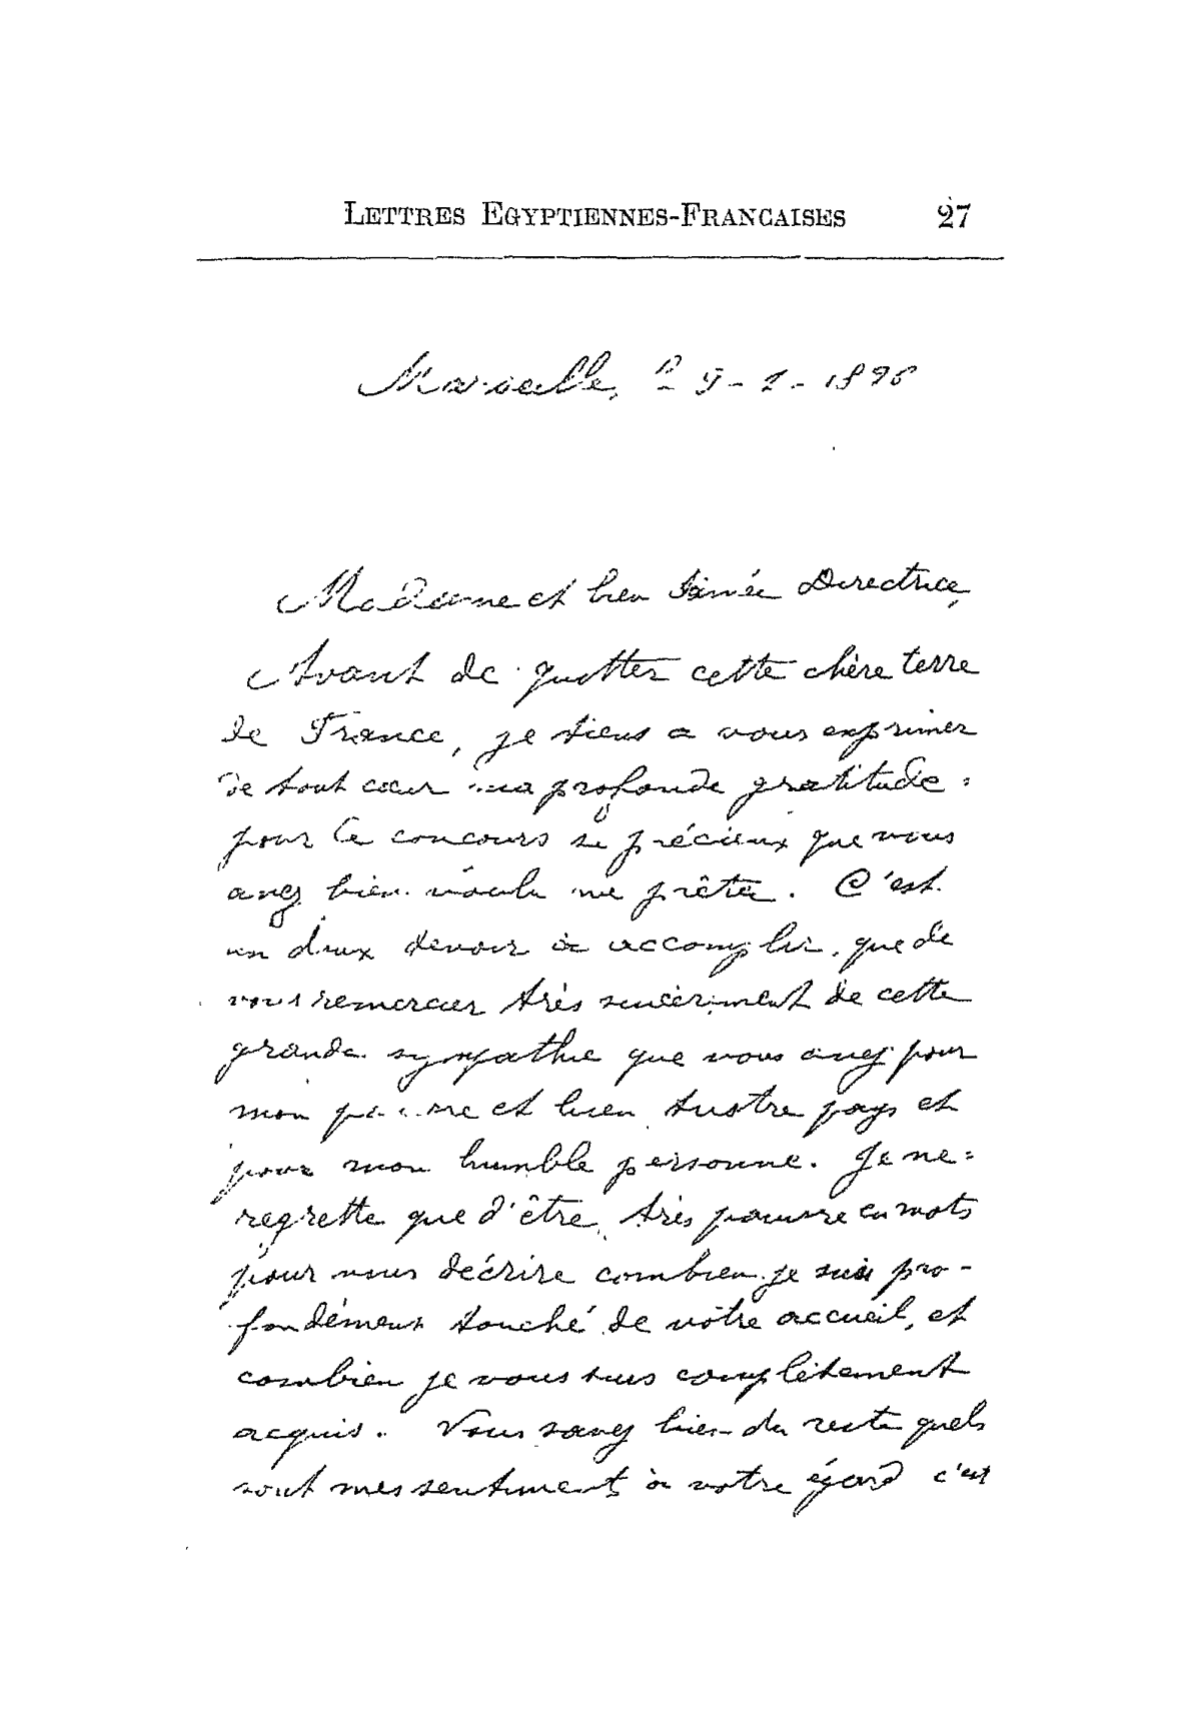 LETTRES EGYPTIENNES-FRANCAISES 27
Marseille, le 9-1-1896
Madame et bien Aimée Directrice,
Avant de quitter cette chère terre
de France, je tiens a vous exprimer
de tout cœur ma profonde gratitude
pour le concours si précieux que vous
avez bien voulu me prêter. C'est
un doux devoir à accomplir, que de
vous remercier très sincèrement de cette
grande sympathie que vous avez pour
mon pauvre et bien triste pays et
pour mon humble personne. Je ne
regrette que d'être très pauvre en mots
pour vous décrire combien je suis pro-
fondément touché de votre accueil, et
combien je vous suis complètement
acquis. Vous savez bien du reste quels
sont mes sentiments à votre égard c'est